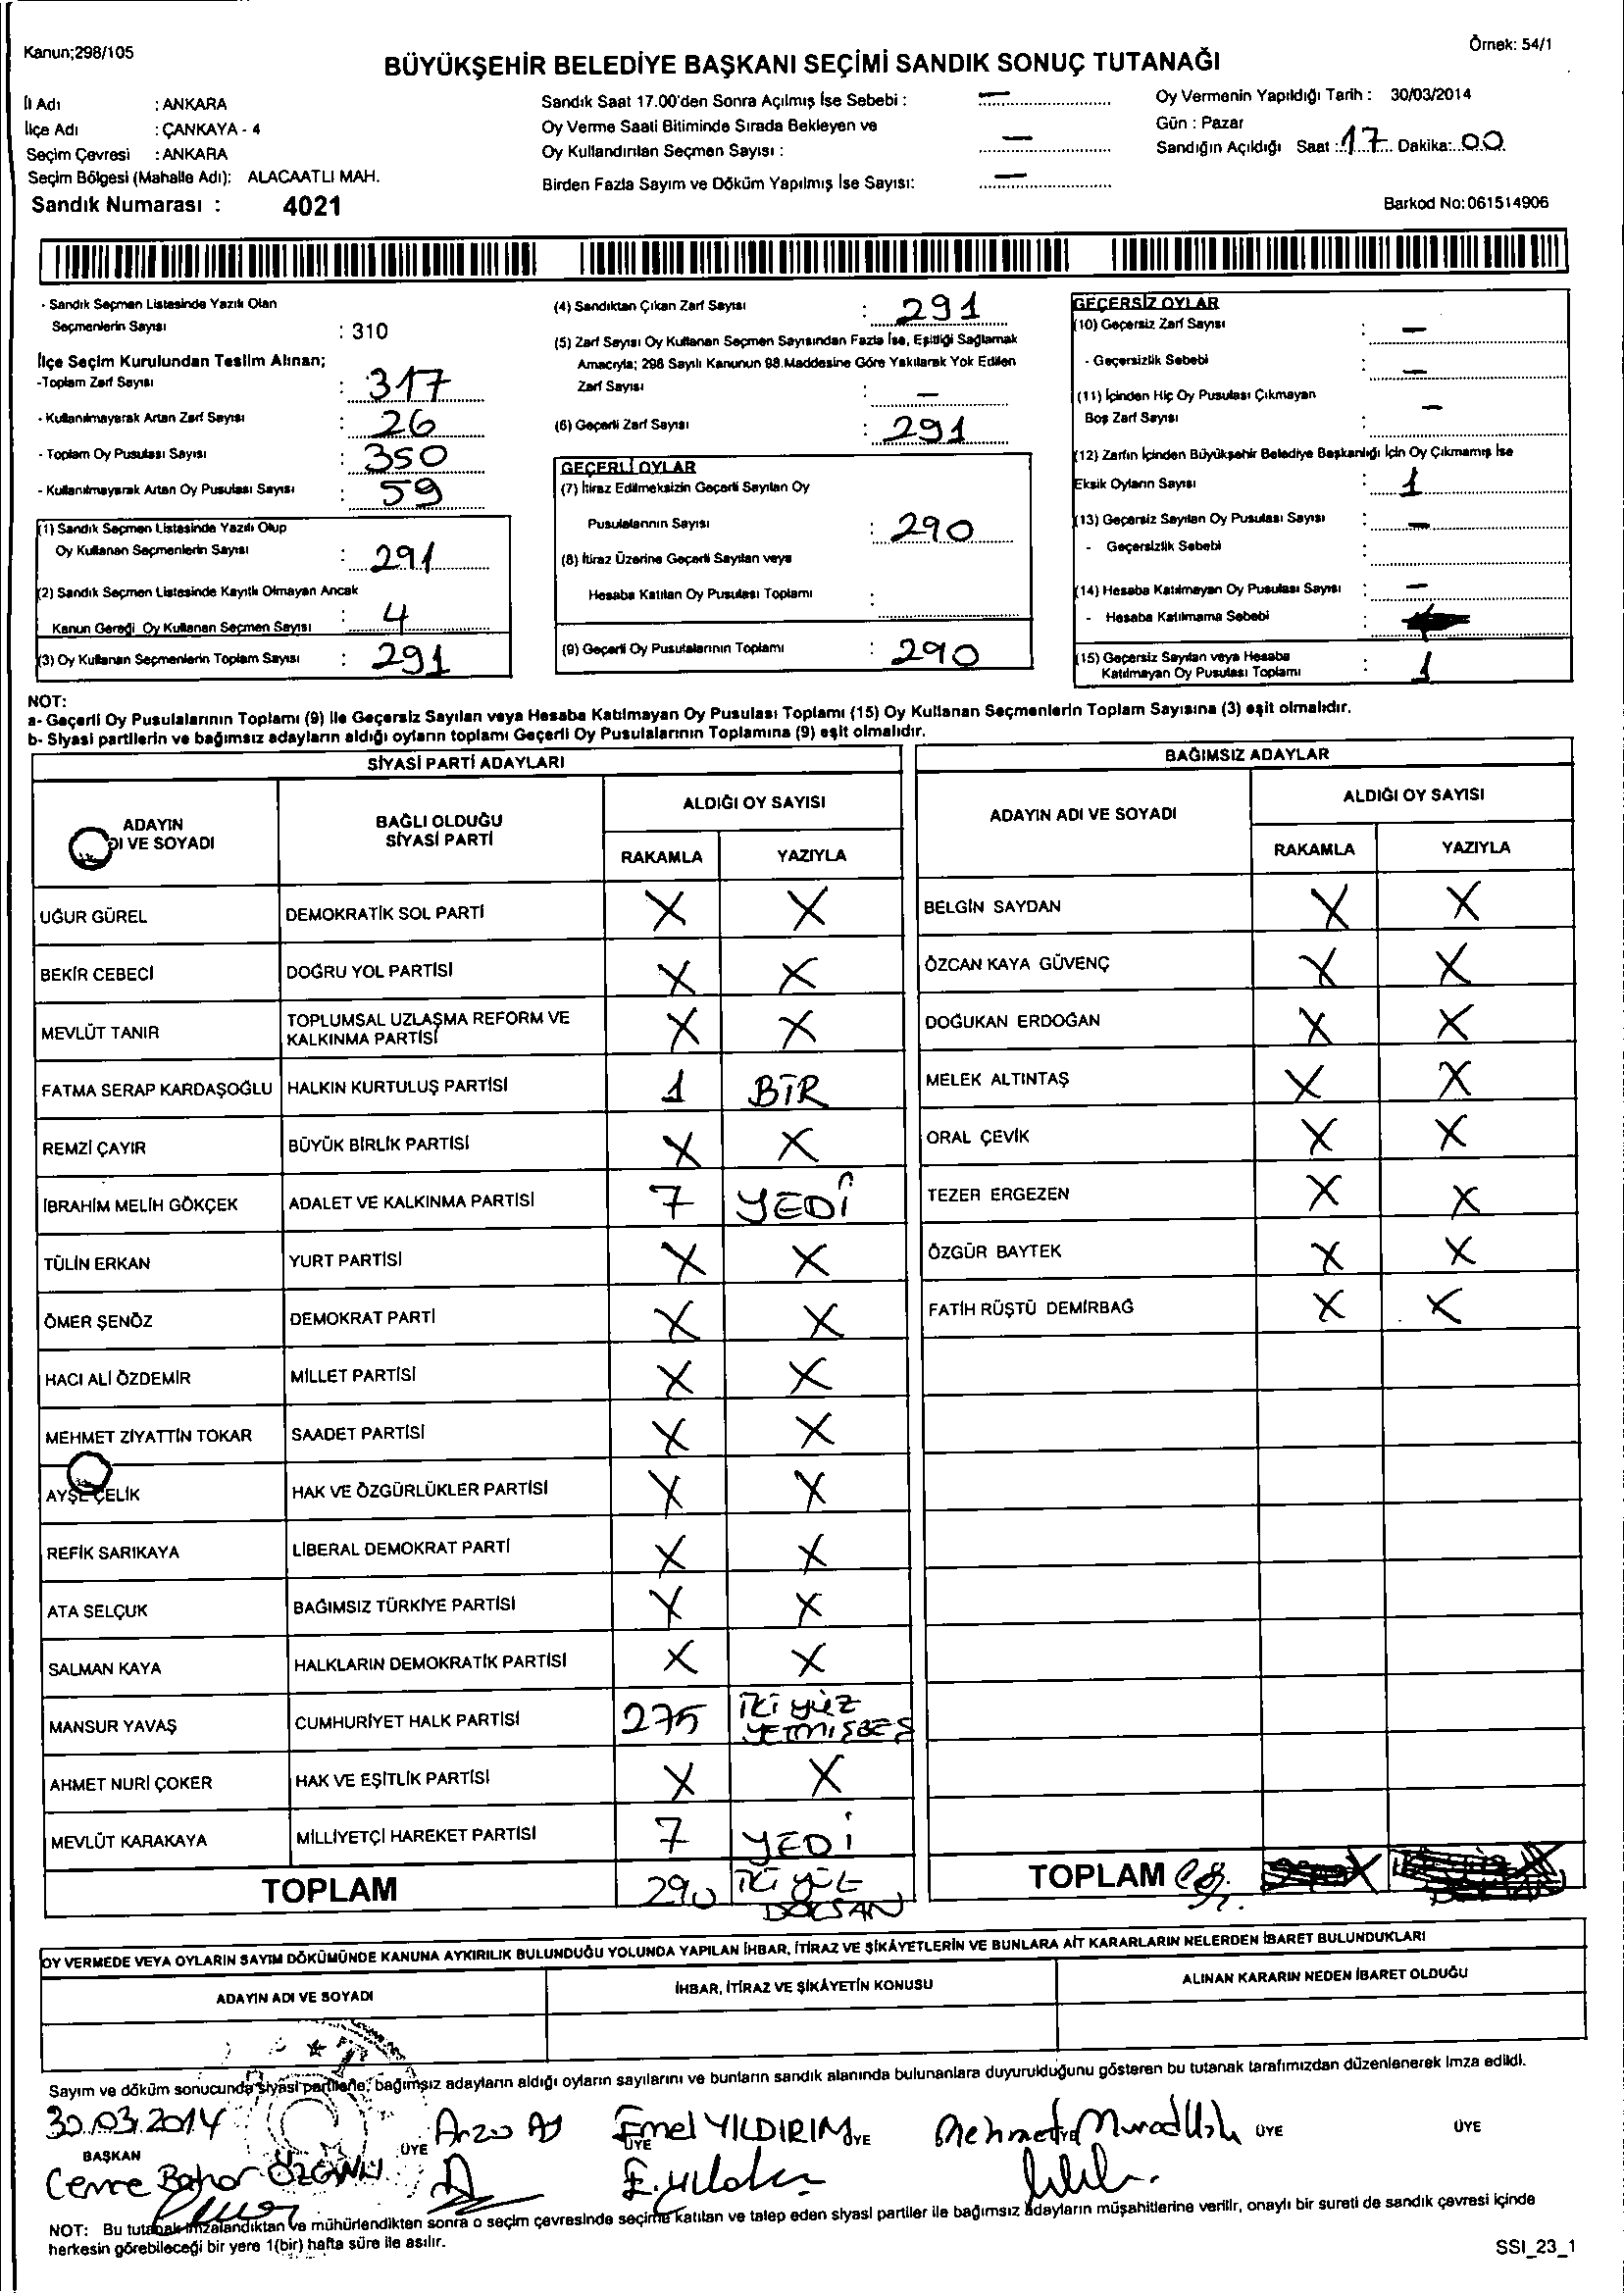 Kanun;298/105
Örnek: 54/1
BÜYÜKŞEHİR BELEDİYE BAŞKANI SEÇİMİ SANDIK SONUÇ TUTANAĞI
İl Adı : ANKARA
İlçe Adı : ÇANKAYA - 4
Seçim Çevresi : ANKARA
Seçim Bölgesi (Mahalle Adı): ALACAATLI MAH.
Sandık Numarası : 4021
Sandık Saat 17.00'den Sonra Açılmış İse Sebebi : —
Oy Verme Saati Bitiminde Sırada Bekleyen ve
Oy Kullandırılan Seçmen Sayısı : —
Birden Fazla Sayım ve Döküm Yapılmış İse Sayısı: —
Oy Vermenin Yapıldığı Tarih : 30/03/2014
Gün : Pazar
Sandığın Açıldığı Saat : 17 Dakika: 00
Barkod No: 061514906
- Sandık Seçmen Listesinde Yazılı Olan
Seçmenlerin Sayısı : 310
İlçe Seçim Kurulundan Teslim Alınan;
-Toplam Zarf Sayısı : 317
- Kullanılmayarak Artan Zarf Sayısı : 26
- Toplam Oy Pusulası Sayısı : 350
- Kullanılmayarak Artan Oy Pusulası Sayısı : 59
(1) Sandık Seçmen Listesinde Yazılı Olup
Oy Kullanan Seçmenlerin Sayısı : 291
(2) Sandık Seçmen Listesinde Kayıtlı Olmayan Ancak
Kanun Gereği Oy Kullanan Seçmen Sayısı : 4
(3) Oy Kullanan Seçmenlerin Toplam Sayısı : 291
(4) Sandıktan Çıkan Zarf Sayısı : 291
(5) Zarf Sayısı Oy Kullanan Seçmen Sayısından Fazla İse, Eşitliği Sağlamak
Amacıyla; 298 Sayılı Kanunun 98.Maddesine Göre Yakılarak Yok Edilen
Zarf Sayısı : —
(6) Geçerli Zarf Sayısı : 291
GEÇERLİ OYLAR
(7) İtiraz Edilmeksizin Geçerli Sayılan Oy
Pusulalarının Sayısı : 290
(8) İtiraz Üzerine Geçerli Sayılan veya
Hesaba Katılan Oy Pusulası Toplamı :
(9) Geçerli Oy Pusulalarının Toplamı : 290
GEÇERSİZ OYLAR
(10) Geçersiz Zarf Sayısı : —
- Geçersizlik Sebebi : —
(11) İçinden Hiç Oy Pusulası Çıkmayan
Boş Zarf Sayısı : —
(12) Zarfın İçinden Büyükşehir Belediye Başkanlığı İçin Oy Çıkmamış İse
Eksik Oyların Sayısı : 1
(13) Geçersiz Sayılan Oy Pusulası Sayısı : —
- Geçersizlik Sebebi :
(14) Hesaba Katılmayan Oy Pusulası Sayısı : —
- Hesaba Katılmama Sebebi :
(15) Geçersiz Sayılan veya Hesaba
Katılmayan Oy Pusulası Toplamı : 1
NOT:
a- Geçerli Oy Pusulalarının Toplamı (9) ile Geçersiz Sayılan veya Hesaba Katılmayan Oy Pusulası Toplamı (15) Oy Kullanan Seçmenlerin Toplam Sayısına (3) eşit olmalıdır.
b- Siyasi partilerin ve bağımsız adayların aldığı oyların toplamı Geçerli Oy Pusulalarının Toplamına (9) eşit olmalıdır.
SİYASİ PARTİ ADAYLARI
ADAYIN
DI VE SOYADI
BAĞLI OLDUĞU
SİYASİ PARTİ
ALDIĞI OY SAYISI
RAKAMLA YAZIYLA
UĞUR GÜREL DEMOKRATİK SOL PARTİ X X
BEKİR CEBECİ DOĞRU YOL PARTİSİ X X
MEVLÜT TANIR TOPLUMSAL UZLAŞMA REFORM VE
KALKINMA PARTİSİ X X
FATMA SERAP KARDAŞOĞLU HALKIN KURTULUŞ PARTİSİ 1 BİR
REMZİ ÇAYIR BÜYÜK BİRLİK PARTİSİ X X
İBRAHİM MELİH GÖKÇEK ADALET VE KALKINMA PARTİSİ 7 YEDİ
TÜLİN ERKAN YURT PARTİSİ X X
ÖMER ŞENÖZ DEMOKRAT PARTİ X X
HACI ALİ ÖZDEMİR MİLLET PARTİSİ X X
MEHMET ZİYATTİN TOKAR SAADET PARTİSİ X X
AYŞE ÇELİK HAK VE ÖZGÜRLÜKLER PARTİSİ X X
REFİK SARIKAYA LİBERAL DEMOKRAT PARTİ X X
ATA SELÇUK BAĞIMSIZ TÜRKİYE PARTİSİ X X
SALMAN KAYA HALKLARIN DEMOKRATİK PARTİSİ X X
MANSUR YAVAŞ CUMHURİYET HALK PARTİSİ 275 İKİ YÜZ
YETMİŞBEŞ
AHMET NURİ ÇOKER HAK VE EŞİTLİK PARTİSİ X X
MEVLÜT KARAKAYA MİLLİYETÇİ HAREKET PARTİSİ 7 YEDİ
TOPLAM 290 İKİ YÜZ
DOKSAN
BAĞIMSIZ ADAYLAR
ADAYIN ADI VE SOYADI
ALDIĞI OY SAYISI
RAKAMLA YAZIYLA
BELGİN SAYDAN X X
ÖZCAN KAYA GÜVENÇ X X
DOĞUKAN ERDOĞAN X X
MELEK ALTINTAŞ X X
ORAL ÇEVİK X X
TEZER ERGEZEN X X
ÖZGÜR BAYTEK X X
FATİH RÜŞTÜ DEMİRBAĞ X X
TOPLAM
OY VERMEDE VEYA OYLARIN SAYIM DÖKÜMÜNDE KANUNA AYKIRILIK BULUNDUĞU YOLUNDA YAPILAN İHBAR, İTİRAZ VE ŞİKÂYETLERİN VE BUNLARA AİT KARARLARIN NELERDEN İBARET BULUNDUKLARI
ADAYIN ADI VE SOYADI İHBAR, İTİRAZ VE ŞİKÂYETİN KONUSU ALINAN KARARIN NEDEN İBARET OLDUĞU
Sayım ve döküm sonucunda siyasi partilerle, bağımsız adayların aldığı oyların sayılarını ve bunların sandık alanında bulunanlara duyurulduğunu gösteren bu tutanak tarafımızdan düzenlenerek imza edildi.
30.03.2014 Arzu Emel YILDIRIM Mehmet
BAŞKAN ÜYE ÜYE ÜYE ÜYE ÜYE ÜYE
Cemre
NOT: Bu tutanak imzalandıktan ve mühürlendikten sonra o seçim çevresinde seçime katılan ve talep eden siyasi partiler ile bağımsız adayların müşahitlerine verilir, onaylı bir sureti de sandık çevresi içinde
herkesin görebileceği bir yere 1(bir) hafta süre ile asılır.
SSI_23_1